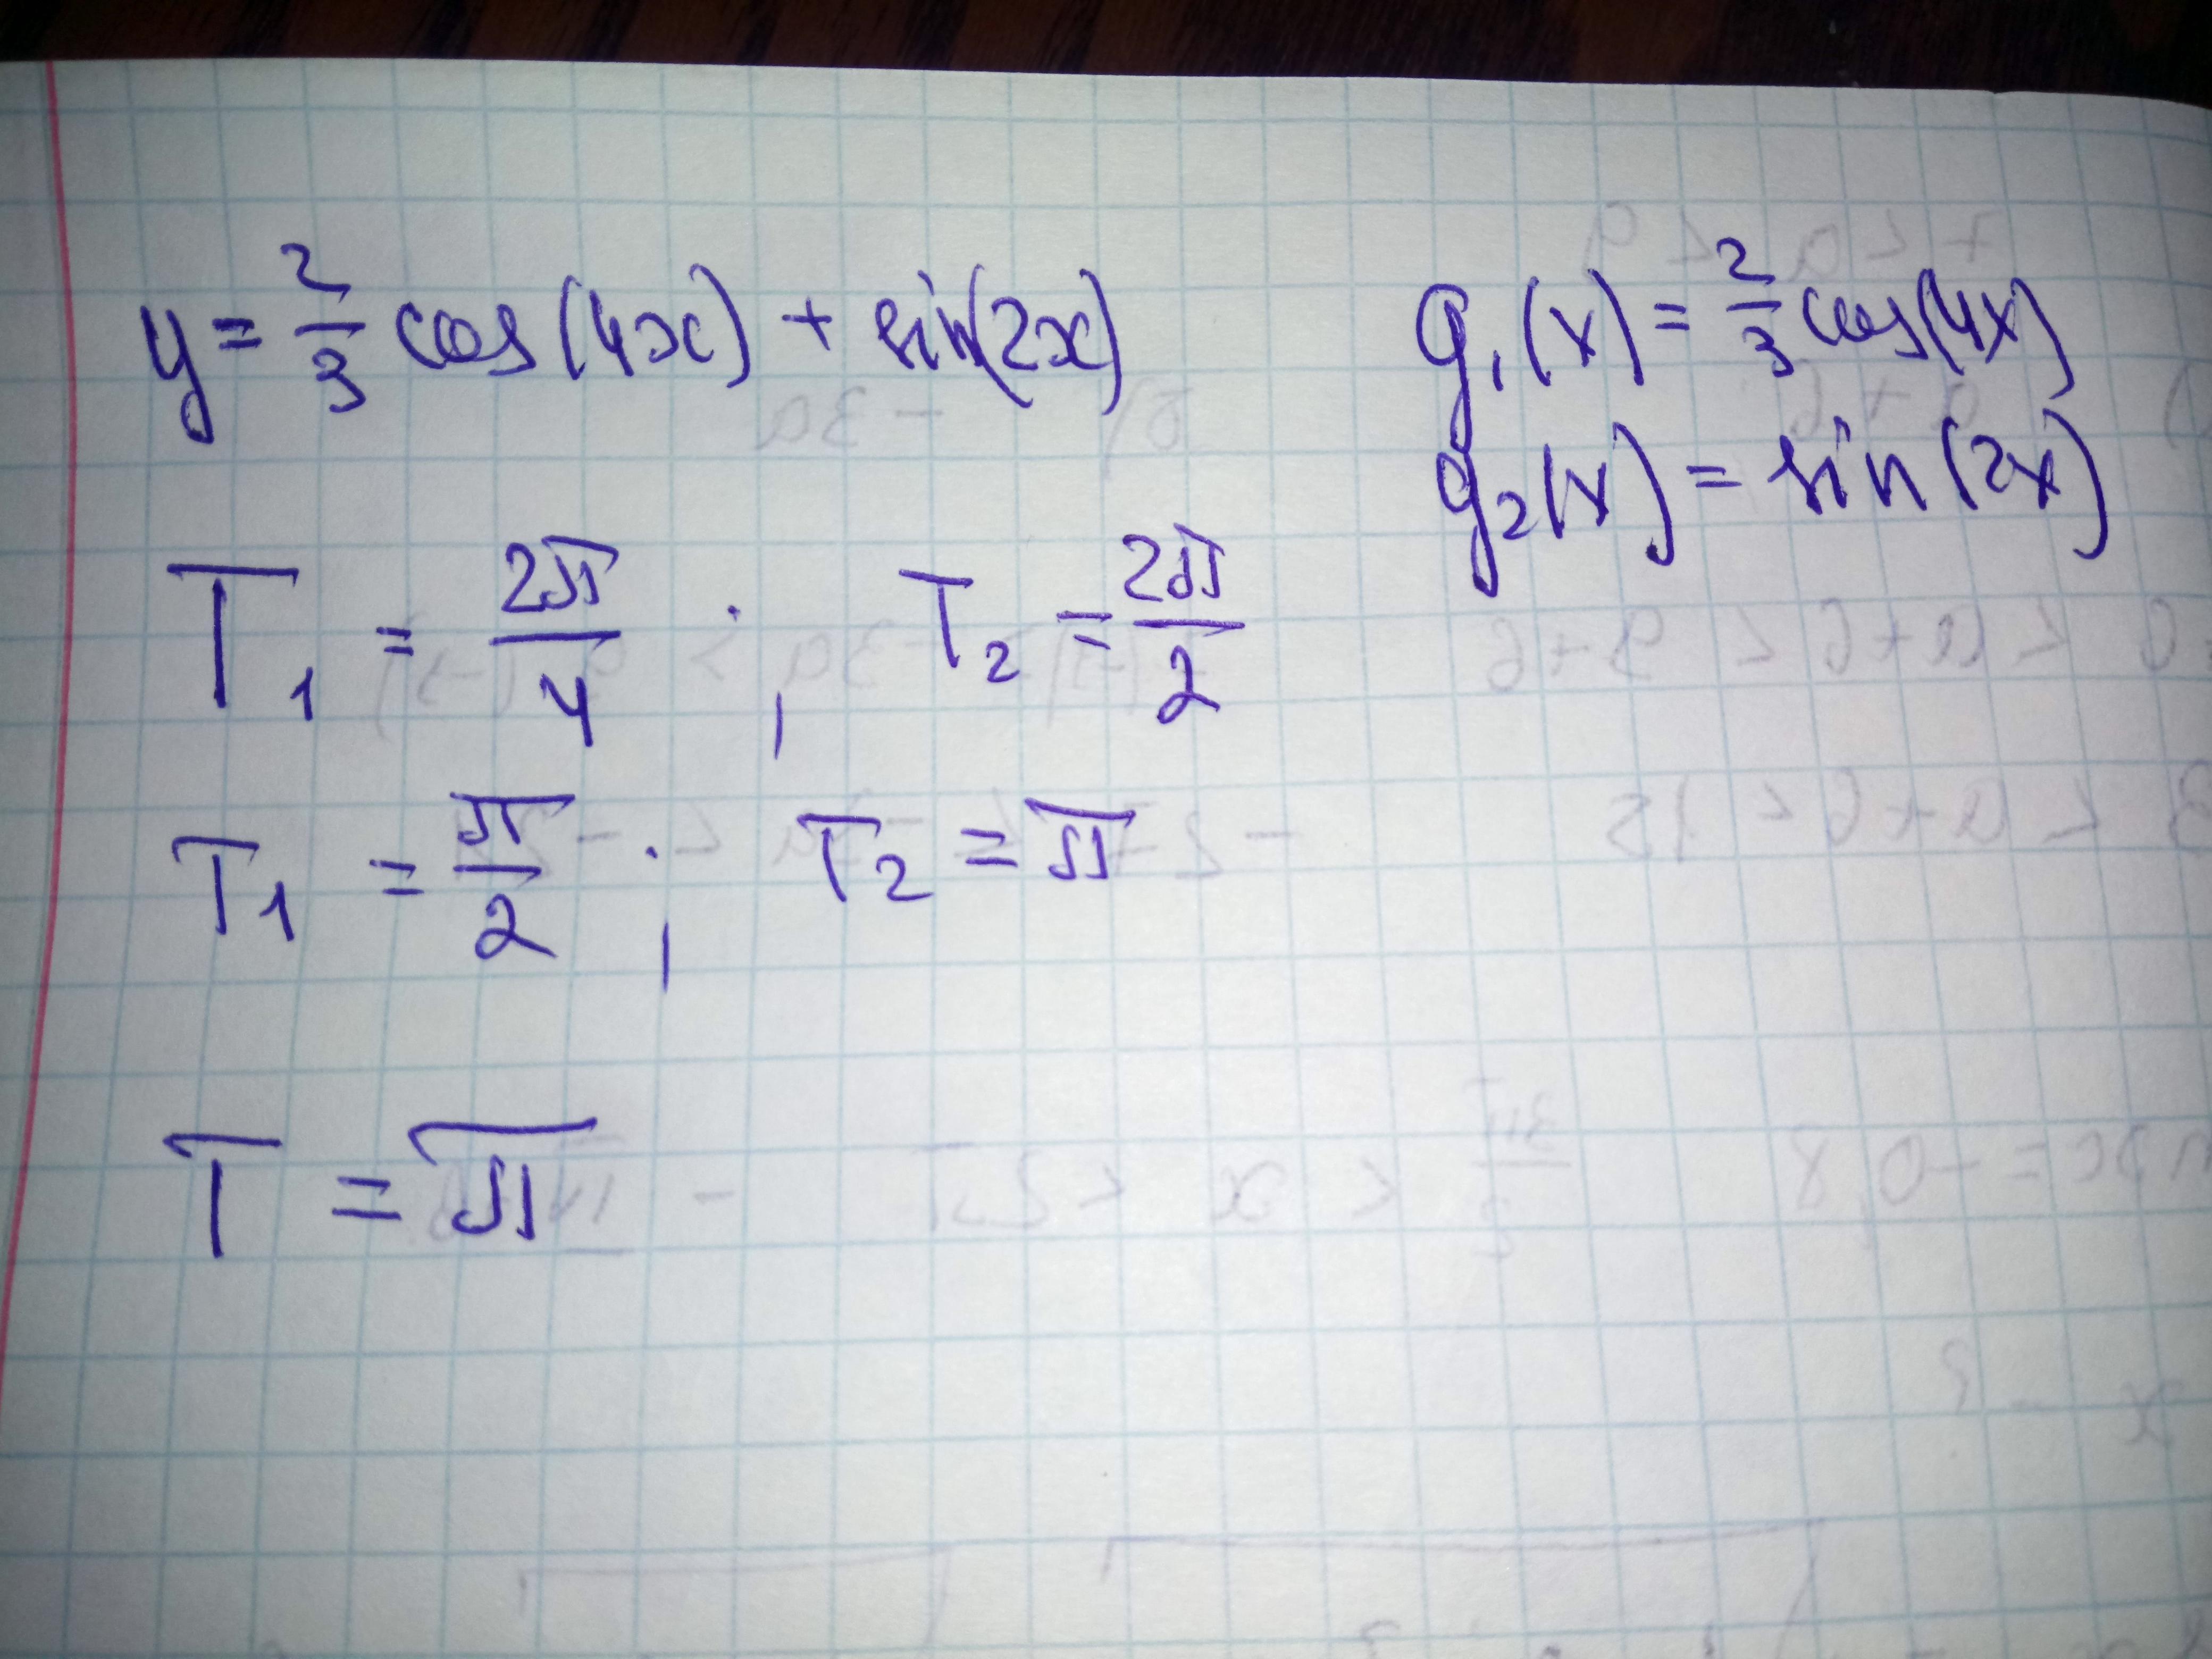 y = 2/3 cos(4x) + sin(2x)
g₁(x) = 2/3 cos(4x)
g₂(x) = sin(2x)
T₁ = 2π/4 ; T₂ = 2π/2
T₁ = π/2 ; T₂ = π
T = π